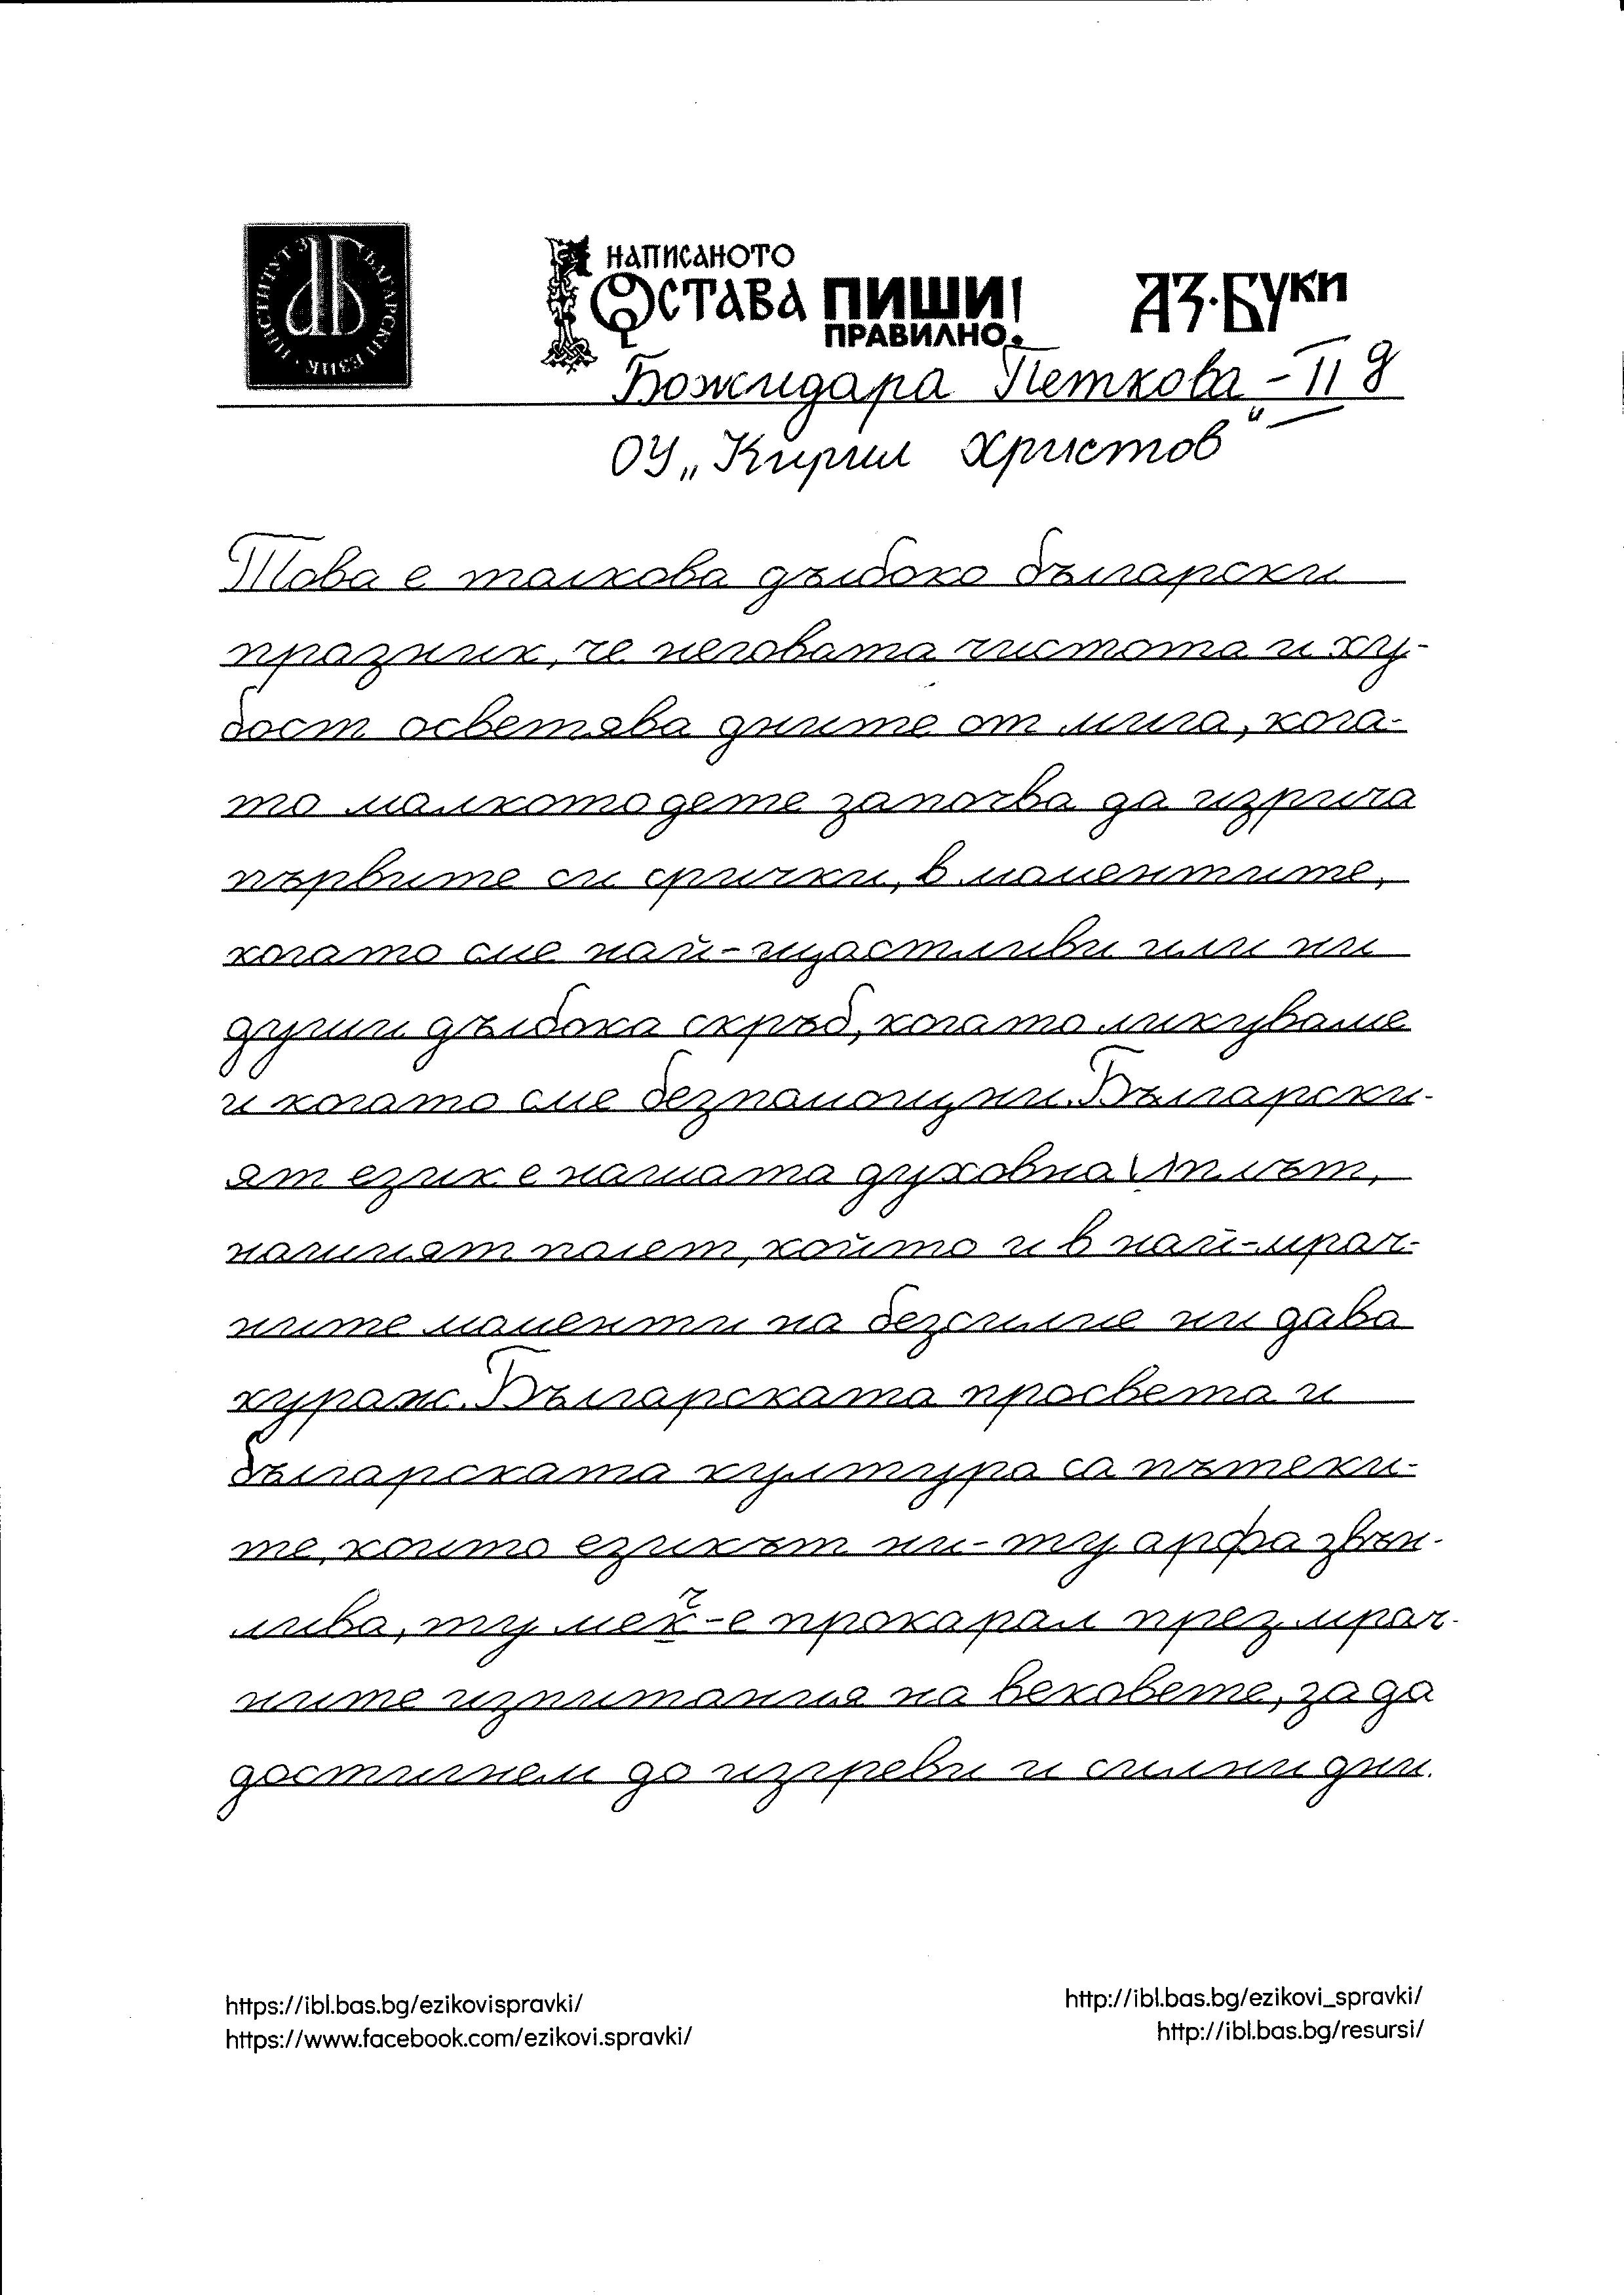 ИНСТИТУТ ЗА БЪЛГАРСКИ ЕЗИК
НАПИСАНОТО
ОСТАВА ПИШИ
ПРАВИЛНО!
АЗ·БУКИ
Божидара Петкова - II д
ОУ „Кирил Христов“
Това е толкова дълбоко български
празник, че неговата чистота и ху-
бост осветява дните от мига, кога-
то малкото дете започва да изрича
първите си срички, в моментите,
когато сме най-щастливи или ни
души дълбока скръб, когато ликуваме
и когато сме безпомощни. Български-
ят език е нашата духовна плът,
нашият полет, който и в най-мрач-
ните моменти на безсилие ни дава
кураж. Българската просвета и
българската култура са пътеки-
те, които езикът ни - ту арфа звън-
лива, ту меч - е прокарал през мрач-
ните изпитания на вековете, за да
достигнем до изгреви и силни дни.
https://ibl.bas.bg/ezikovispravki/
https://www.facebook.com/ezikovi.spravki/
http://ibl.bas.bg/ezikovi_spravki/
http://ibl.bas.bg/resursi/